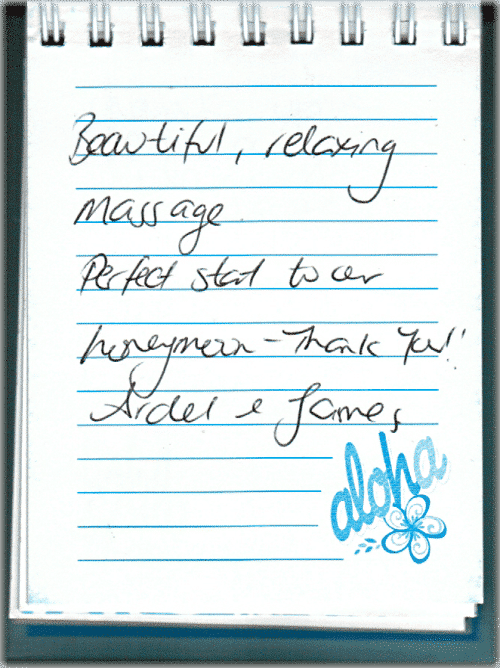 Beautiful, relaxing
massage
Perfect start to our
honeymoon - Thank You!!
Ardel & James
aloha